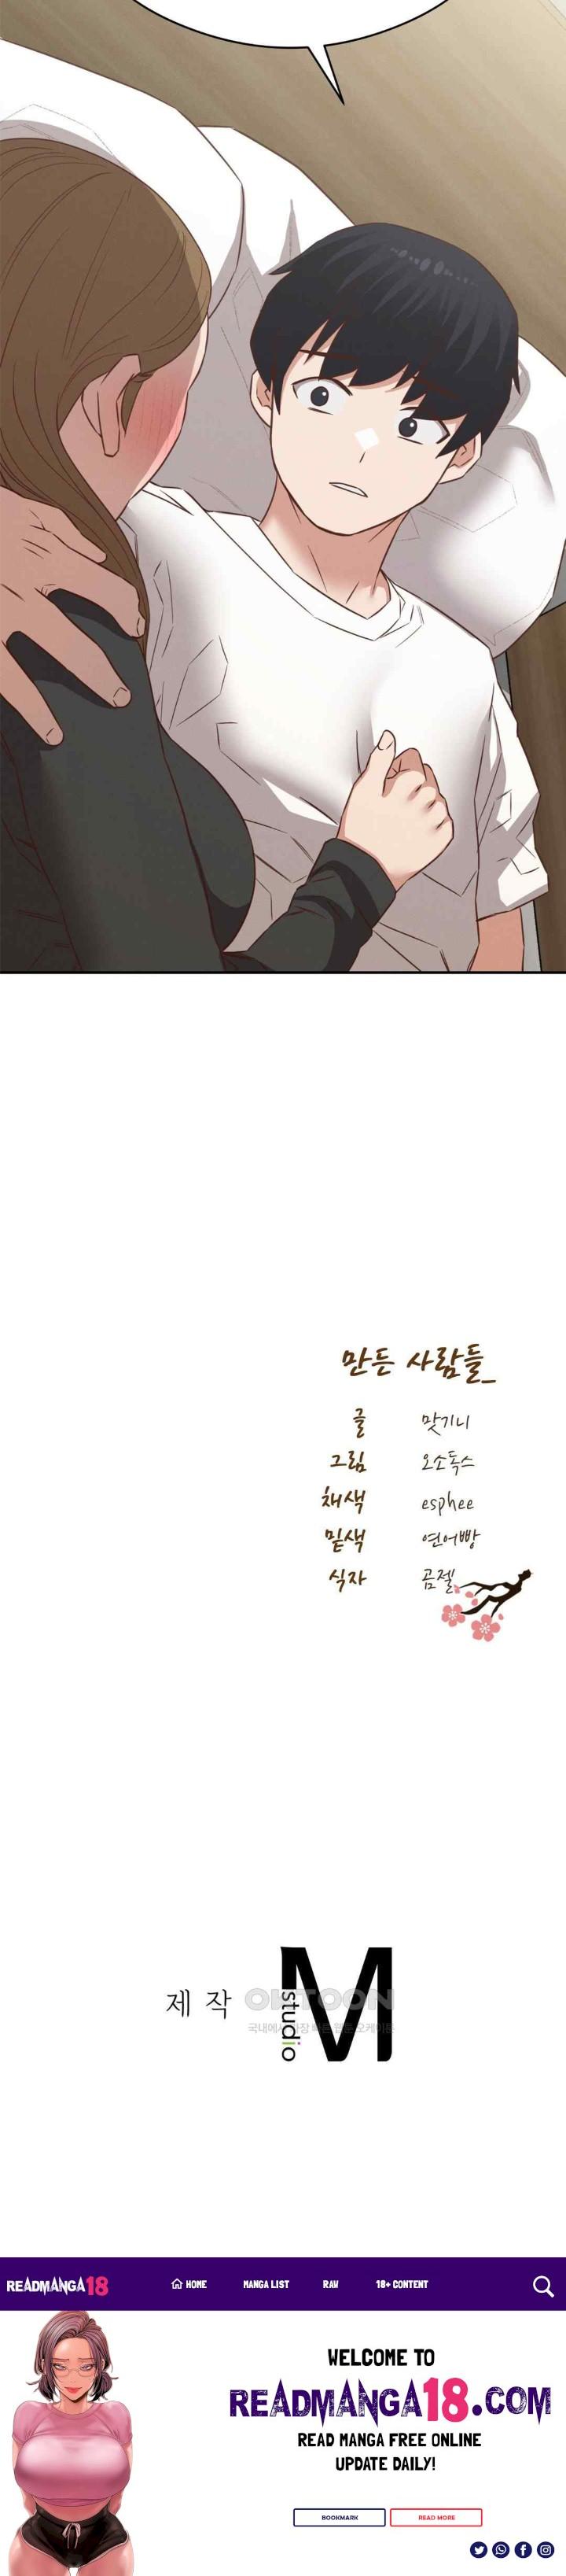 만든 사람들
글 맛기니
그림 오소독스
채색 esphee
밑색 연어빵
식자 곰젤
제작 studio M
OKTOON
국내에서 가장 빠른 웹툰 오케이툰
READMANGA18
HOME MANGA LIST RAW 18+ CONTENT
WELCOME TO
READMANGA18.COM
READ MANGA FREE ONLINE
UPDATE DAILY!
BOOKMARK READ MORE